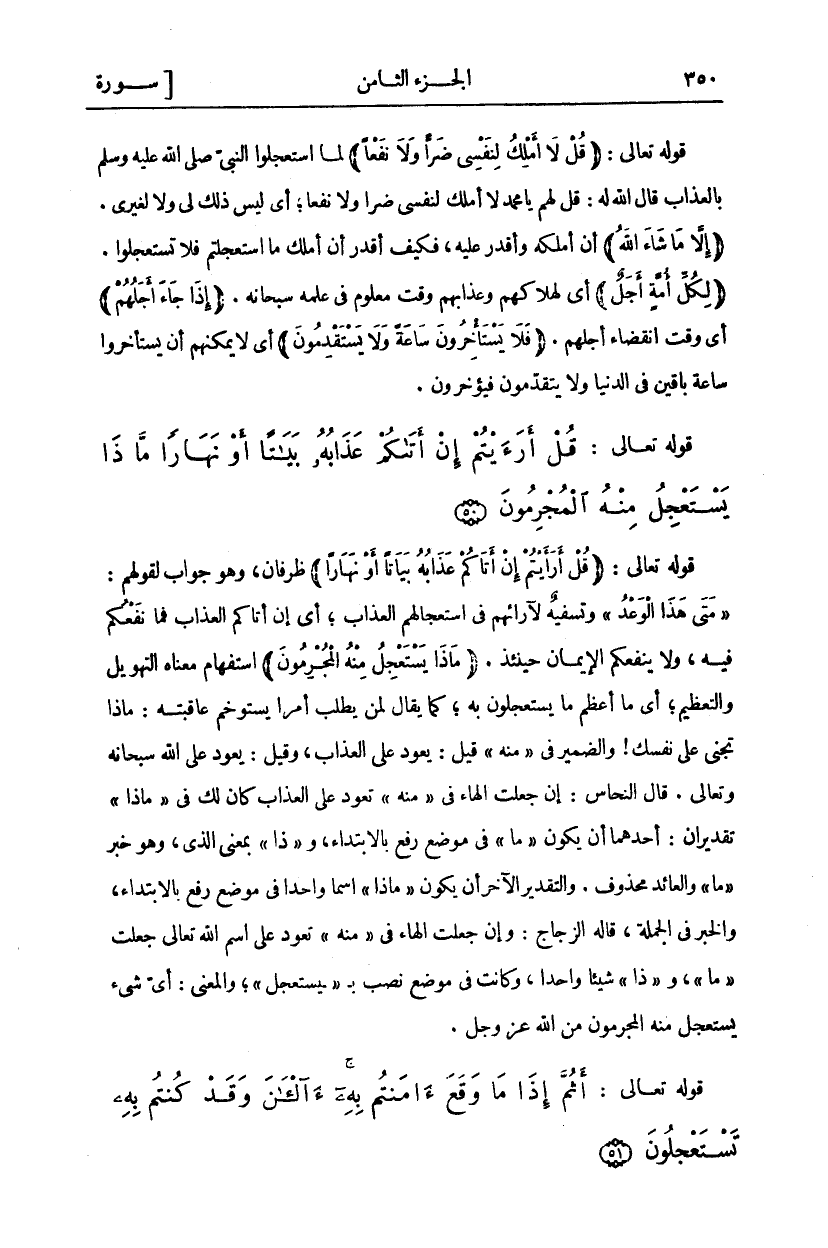 ٣٥٠ الجـزء الثـامن [ ســورة
قوله تعالى : ﴿ قُلْ لَا أَمْلِكُ لِنَفْسِى ضَرًّا وَلَا نَفْعًا ﴾ لمـا استعجلوا النبىّ صلى الله عليه وسلم
بالعذاب قال الله له : قل لهم يا محمد لا أملك لنفسى ضرا ولا نفعا؛ أى ليس ذلك لى ولا لغيرى .
﴿ إِلَّا مَا شَاءَ اللهُ ﴾ أن أملكه وأقدر عليه ، فكيف أقدر أن أملك ما استعجلتم فلا تستعجلوا .
﴿ لِكُلِّ أُمَّةٍ أَجَلٌ ﴾ أى لهلاكهم وعذابهم وقت معلوم فى علمه سبحانه . ﴿ إِذَا جَاءَ أَجَلُهُمْ ﴾
أى وقت انقضاء أجلهم . ﴿ فَلَا يَسْتَأْخِرُونَ سَاعَةً وَلَا يَسْتَقْدِمُونَ ﴾ أى لا يمكنهم أن يستأخروا
ساعة باقين فى الدنيا ولا يتقدّمون فيؤخرون .
قوله تعـالى : قُـلْ أَرَءَيْتُمْ إِنْ أَتَىٰكُمْ عَذَابُهُۥ بَيَـٰتًا أَوْ نَهَـارًا مَّا ذَا
يَسْـتَعْجِلُ مِنْـهُ ٱلْمُجْرِمُونَ ﴿٥٠﴾
قوله تعالى : ﴿ قُلْ أَرَأَيْتُمْ إِنْ أَتَاكُمْ عَذَابُهُ بَيَاتًا أَوْ نَهَارًا ﴾ ظرفان، وهو جواب لقولهم :
« مَتَى هَذَا الْوَعْدُ » وتسفيهٌ لآرائهم فى استعجالهم العذاب ؛ أى إن أتاكم العذاب فما نَفْعُكم
فيـه ، ولا ينفعكم الإيمـان حينئذ . ﴿ مَاذَا يَسْتَعْجِلُ مِنْهُ الْمُجْرِمُونَ ﴾ استفهام معناه التهويل
والتعظيم؛ أى ما أعظم ما يستعجلون به ؛ كما يقال لمن يطلب أمرا يستوخم عاقبتـه : ماذا
تجنى على نفسك! والضمير فى « منه » قيل : يعود على العذاب، وقيل : يعود على الله سبحانه
وتعالى . قال النحاس : إن جعلت الهاء فى « منه » تعود على العذاب كان لك فى « ماذا »
تقديران : أحدهما أن يكون « ما » فى موضع رفع بالابتداء، و « ذا » بمعنى الذى، وهو خبر
«ما» والعائد محذوف . والتقدير الآخر أن يكون « ماذا » اسما واحدا فى موضع رفع بالابتداء،
والخبر فى الجملة ، قاله الزجاج : وإن جعلت الهاء فى « منه » تعود على اسم الله تعالى جعلت
« ما »، و « ذا » شيئا واحدا ، وكانت فى موضع نصب بـ « ـيستعجل »؛ والمعنى : أىّ شىء
يستعجل منه المجرمون من الله عز وجل .
قوله تعـالى : أَثُمَّ إِذَا مَا وَقَعَ ءَامَنتُم بِهِۦٓ ۚ ءَآلْـَٔـٰنَ وَقَـدْ كُنتُم بِهِۦ
تَسْـتَعْجِلُونَ ﴿٥١﴾